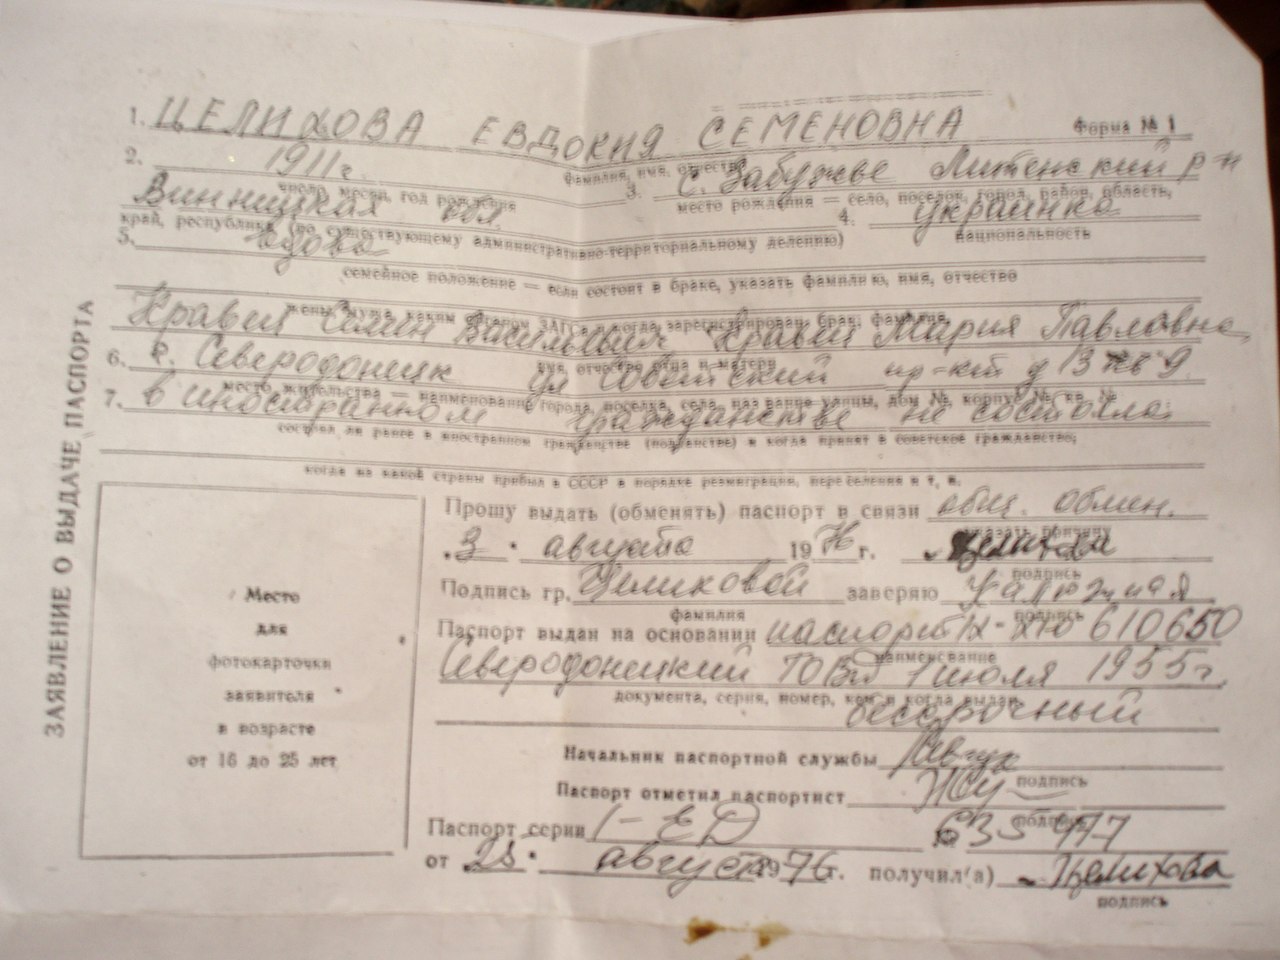 ЗАЯВЛЕНИЕ О ВЫДАЧЕ ПАСПОРТА
1. ЦЕЛИХОВА ЕВДОКИЯ СЕМЕНОВНА Форма № 1
фамилия, имя, отчество
2. 1911 г. 3. с. Забужье Литенский р-н
число, месяц, год рождения место рождения — село, поселок, город, район, область,
Винницкая обл. 4. украинка
край, республика (по существующему административно-территориальному делению) национальность
5. вдова
семейное положение — если состоит в браке, указать фамилию, имя, отчество
жены/мужа, каким органом ЗАГСа и когда зарегистрирован брак, фамилия,
Кравец Семен Васильевич Кравец Мария Павловна
имя, отчество отца и матери
6. г. Северодонецк ул Советский пр-кт д 13 кв 9
место жительства — наименование города, поселка, села, название улицы, дом №, корпус №, кв. №
7. в иностранном гражданстве не состояла
состоял ли ранее в иностранном гражданстве (подданстве) и когда принят в советское гражданство;
когда из какой страны прибыл в СССР в порядке реэмиграции, переселения и т. п.
Место
для
фотокарточки
заявителя
в возрасте
от 16 до 25 лет
Прошу выдать (обменять) паспорт в связи общ. обмен.
указать причину
3 августа 1976 г. Целихова
подпись
Подпись гр. Целиховой заверяю
фамилия подпись
Паспорт выдан на основании паспорт IX-ХЮ 610650
наименование
Северодонецкий ГОВД 1 июля 1955 г.
документа, серия, номер, кем и когда выдан
бессрочный
Начальник паспортной службы
подпись
Паспорт отметил паспортист
подпись
Паспорт серии I-ЕД 635477
от 28 августа 1976 г. получил(а) Целихова
подпись